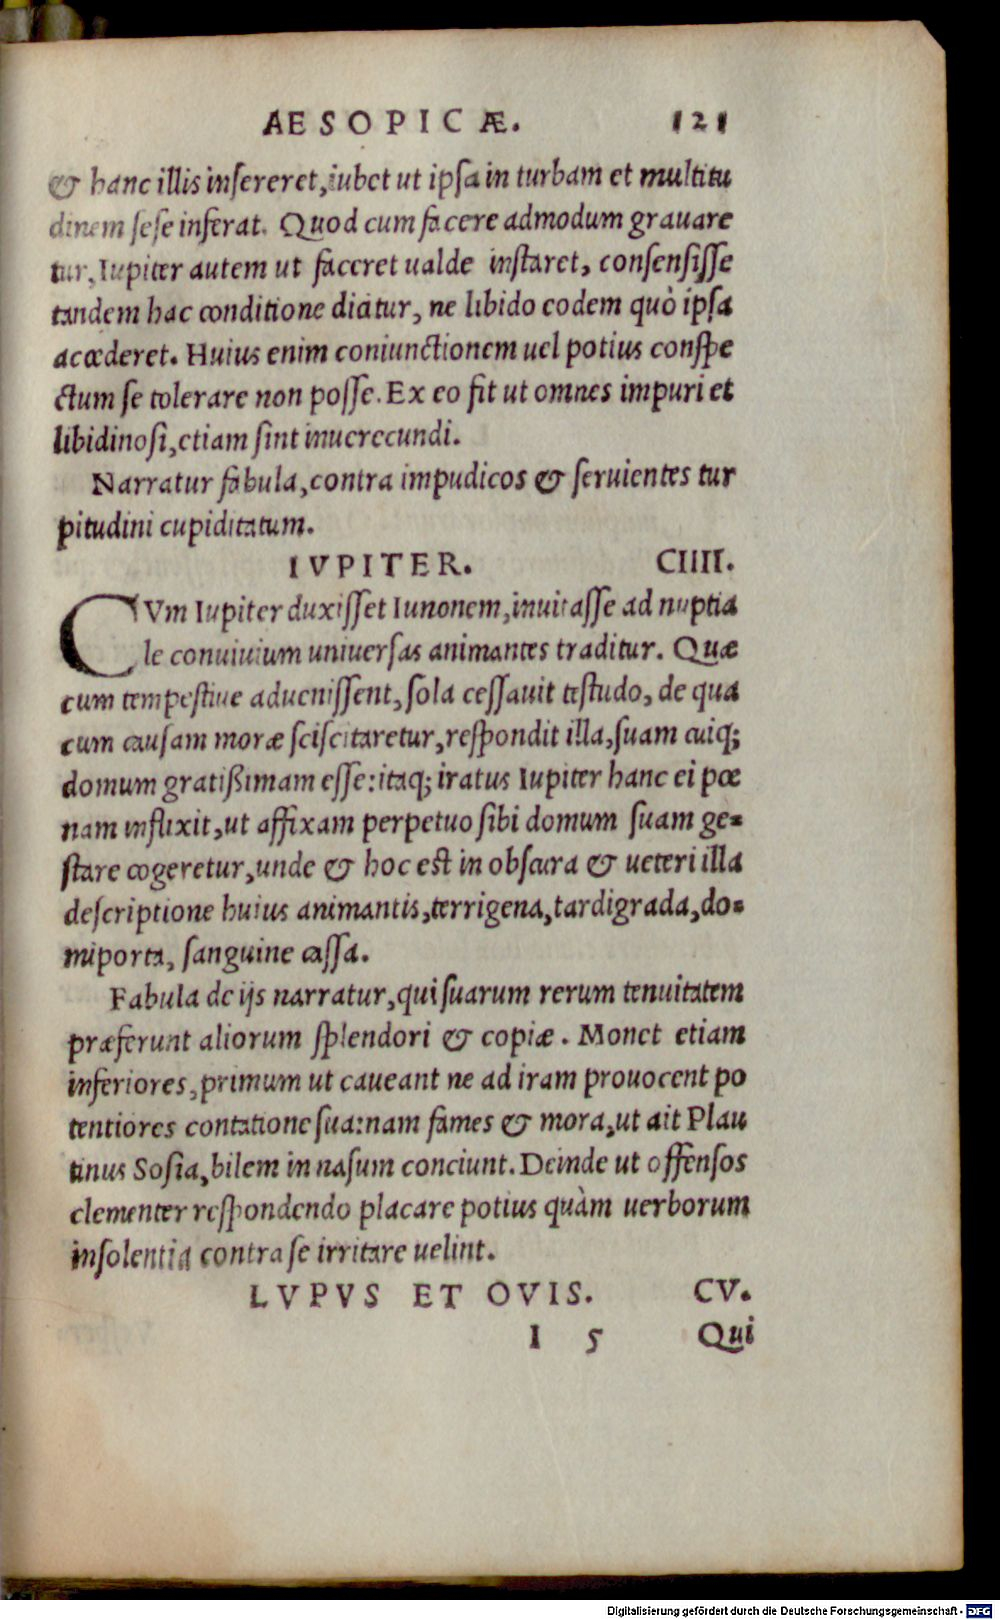 AESOPICÆ. 121
& hanc illis insereret, iubet ut ipsa in turbam et multitu
dinem sese inferat. Quod cum facere admodum grauare
tur, Iupiter autem ut faceret ualde instaret, consensisse
tandem hac conditione dicitur, ne libido eodem quò ipsa
accederet. Huius enim coniunctionem uel potius conspe
ctum se tolerare non posse. Ex eo fit ut omnes impuri et
libidinosi, etiam sint inuerecundi.
Narratur fabula, contra impudicos & seruientes tur
pitudini cupiditatum.
IVPITER. CIIII.
CVm Iupiter duxisset Iunonem, inuitasse ad nuptia
le conuiuium uniuersas animantes traditur. Quæ
cum tempestiue aduenissent, sola cessauit testudo, de qua
cum causam moræ sciscitaretur, respondit illa, suam cuiq;
domum gratißimam esse: itaq; iratus Iupiter hanc ei pœ
nam inflixit, ut affixam perpetuo sibi domum suam ge-
stare cogeretur, unde & hoc est in obscura & ueteri illa
descriptione huius animantis, terrigena, tardigrada, do-
miporta, sanguine cassa.
Fabula de ijs narratur, qui suarum rerum tenuitatem
præferunt aliorum splendori & copiæ. Monet etiam
inferiores, primum ut caueant ne ad iram prouocent po
tentiores contatione sua: nam fames & mora, ut ait Plau
tinus Sosia, bilem in nasum conciunt. Deinde ut offensos
clementer respondendo placare potius quàm uerborum
insolentia contra se irritare uelint.
LVPVS ET OVIS. CV.
I 5 Qui
Digitalisierung gefördert durch die Deutsche Forschungsgemeinschaft - DFG